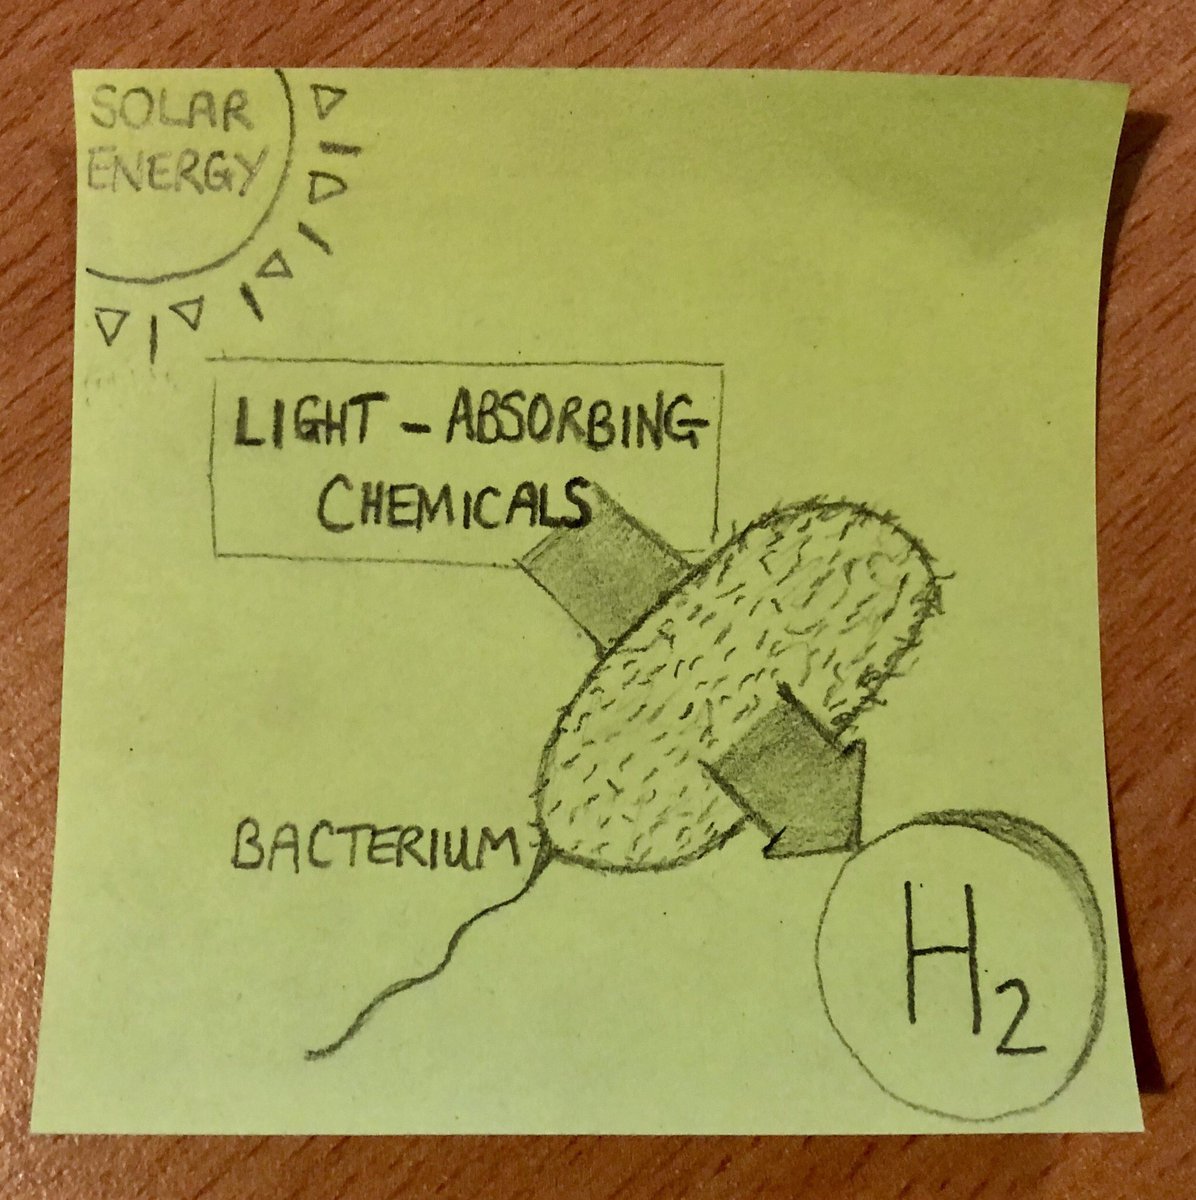 SOLAR
ENERGY
LIGHT - ABSORBING
CHEMICALS
BACTERIUM
H2